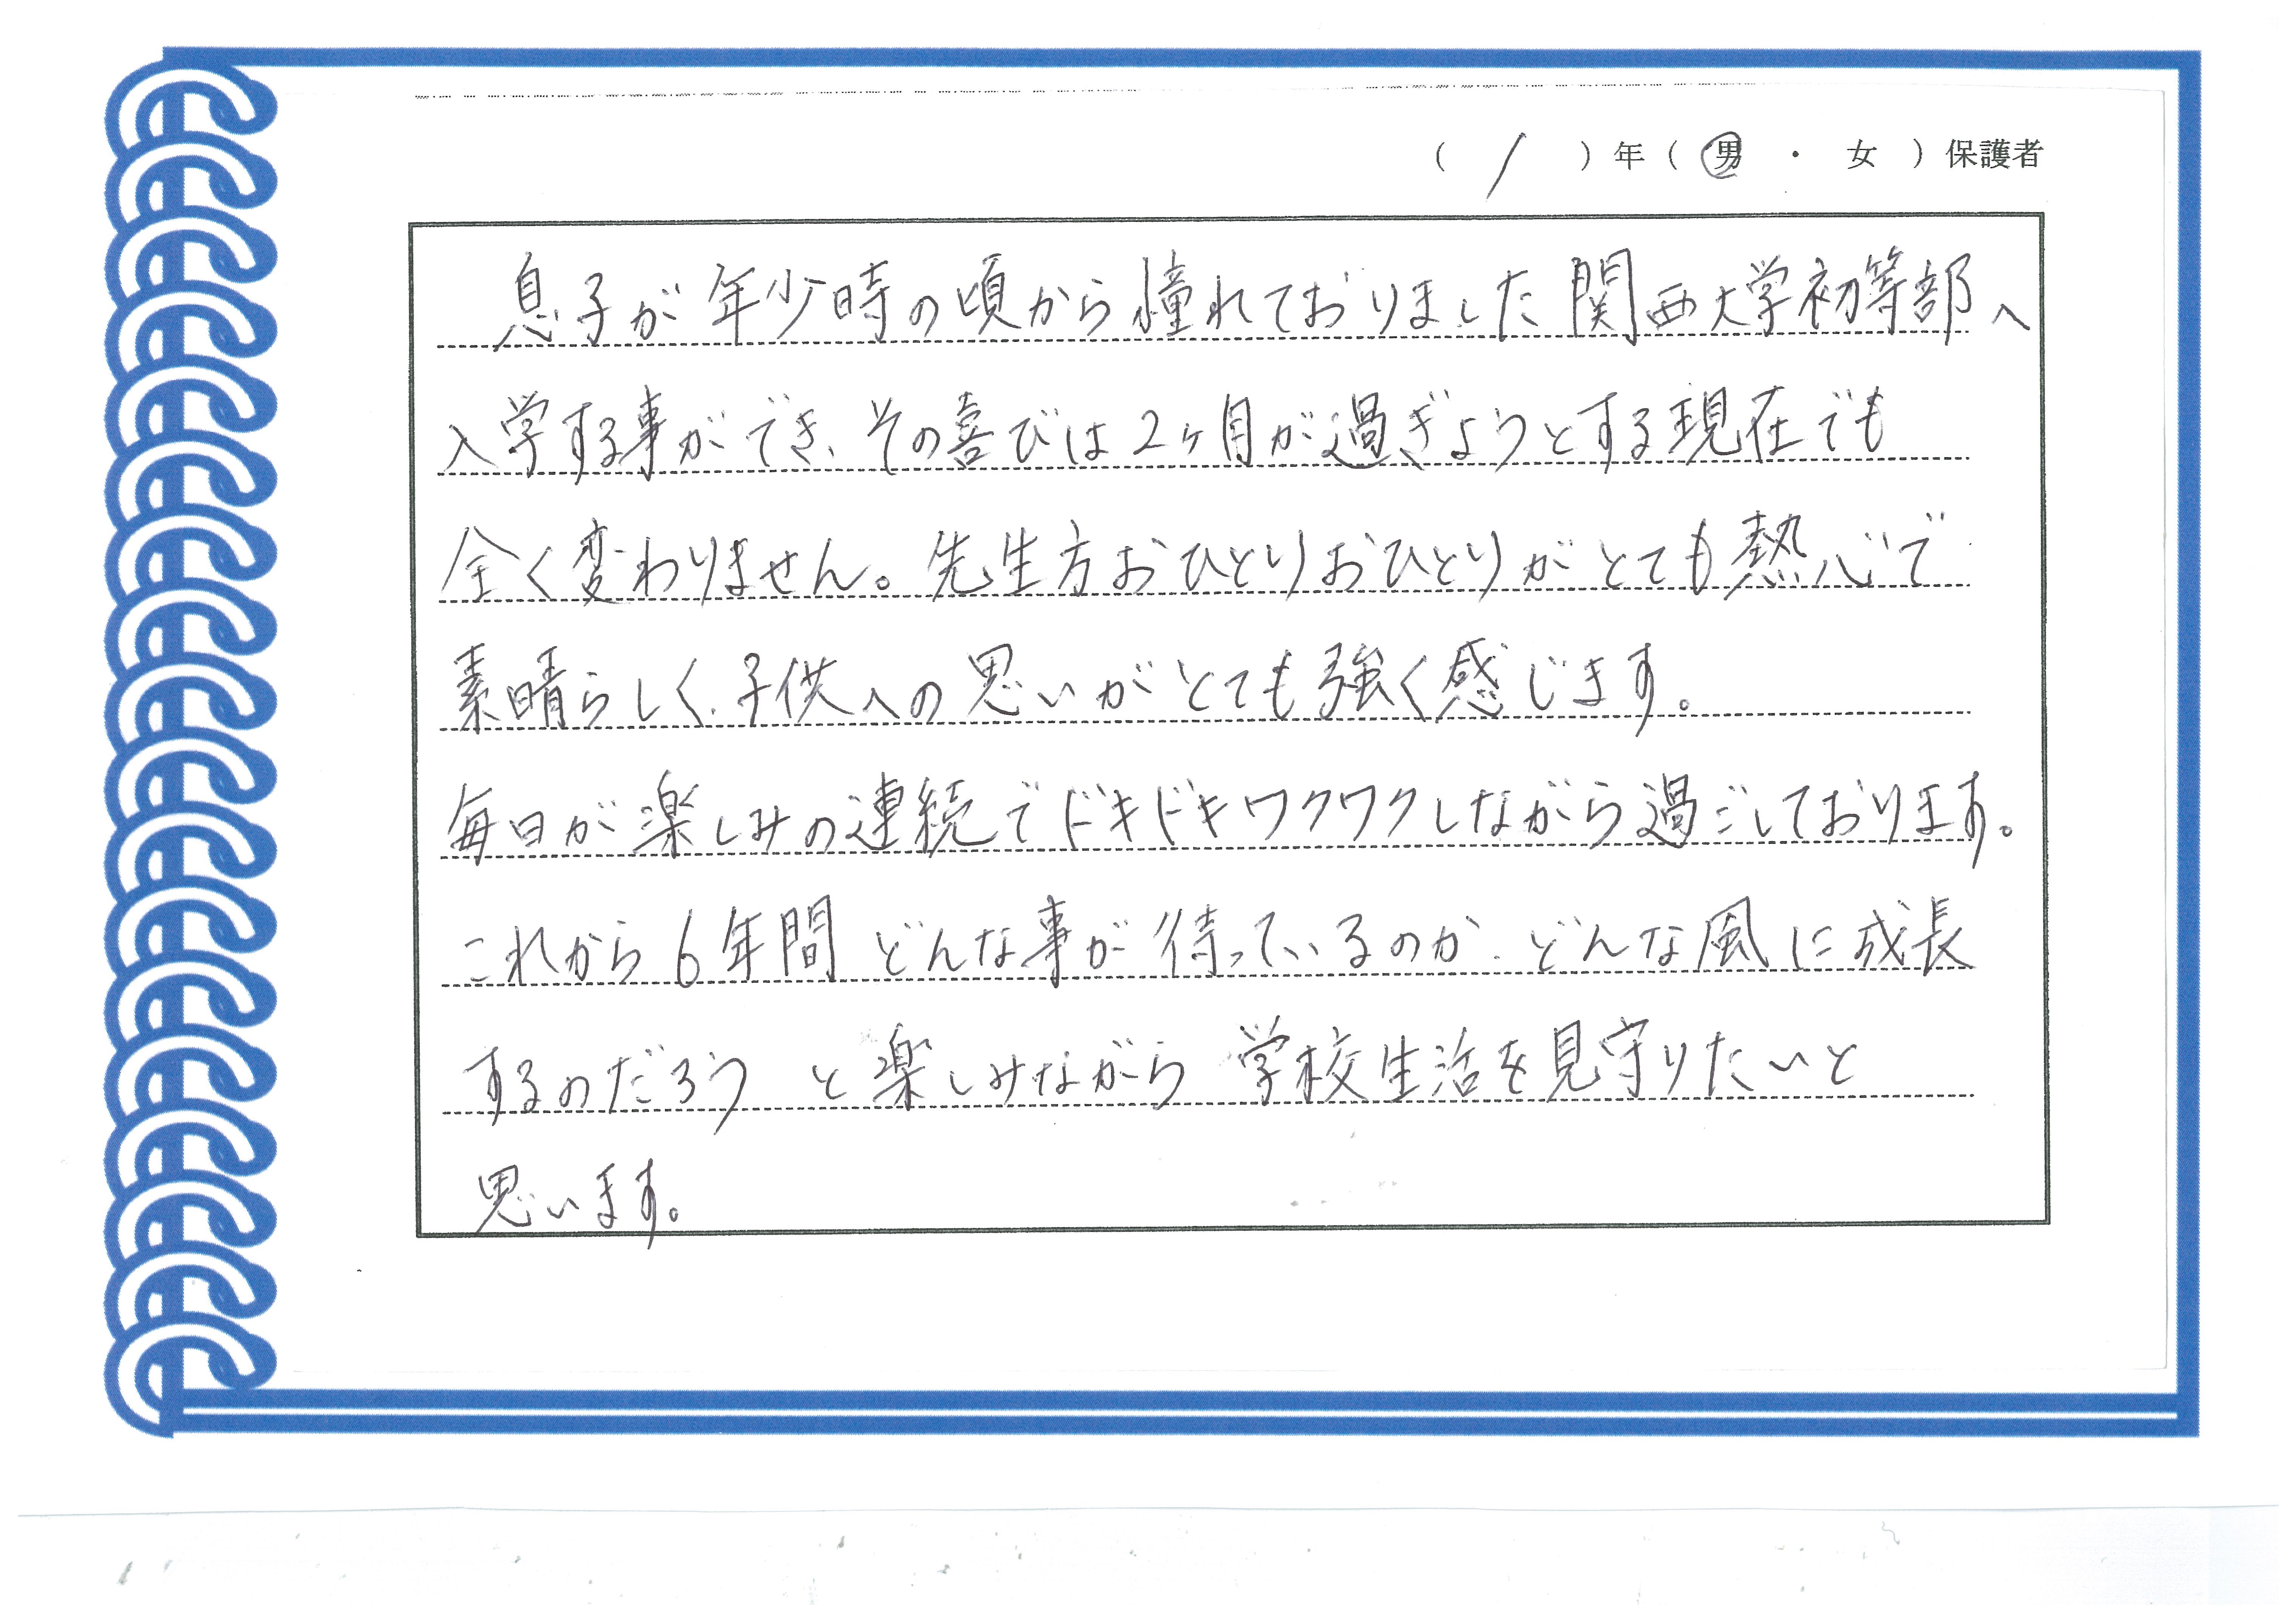 ( 1 ) 年 ( 男 ・ 女 ) 保護者
息子が年少時の頃から憧れておりました関西大学初等部へ
入学する事ができ、その喜びは2ヶ月が過ぎようとする現在でも
全く変わりません。先生方おひとりおひとりがとても熱心で
素晴らしく、子供への思いがとても強く感じます。
毎日が楽しみの連続でドキドキワクワクしながら過ごしております。
これから6年間 どんな事が待っているのか、どんな風に成長
するのだろう と楽しみながら 学校生活を見守りたいと
思います。